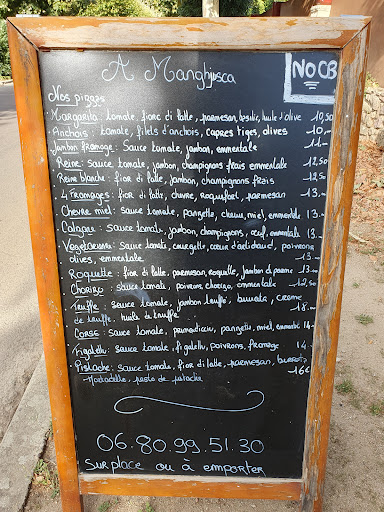 A Manghjusca
NO CB
Nos pizzas
Margarita : tomate, fiore di latte, parmesan, basilic, huile d'olive 10,50
Anchois : tomate, filets d'anchois, capres tiges, olives 10,-
Jambon fromage : Sauce tomate, jambon, emmentale 11.-
Reine : Sauce tomate, jambon, champignons frais emmentale 12,50
Reine blanche : fior di latte, jambon, champignons frais 12,50
4 fromages : fior di latte, chevre, roquefort, parmesan 13.-
Chevre miel : sauce tomate, panzetta, chevre, miel, emmentale 13.-
Calzone : Sauce tomate, jambon, champignons, œuf, emmentale 13.-
Vegetarienne : Sauce tomate, courgette, coeur d'artichaud, poivrons
olives, emmentale 13.-
Roquette : fior di latte, parmesan, roquette, jambon de parme 13.-
Chorizo : sauce tomate, poivrons, chorizo, emmentale 12,50
Truffe : sauce tomate, jambon truffé, burrata, creme
de truffe, huile de truffe 18.-
Corse : sauce tomate, panzetta, miel, emmental 14-
Figatellu : sauce tomate, figatellu, poivrons, fromage 14-
Pistache : sauce tomate, fior di latte, parmesan, burrata 16€
Mortadelle, pesto de pistache
06.80.99.51.30
Sur place ou à emporter